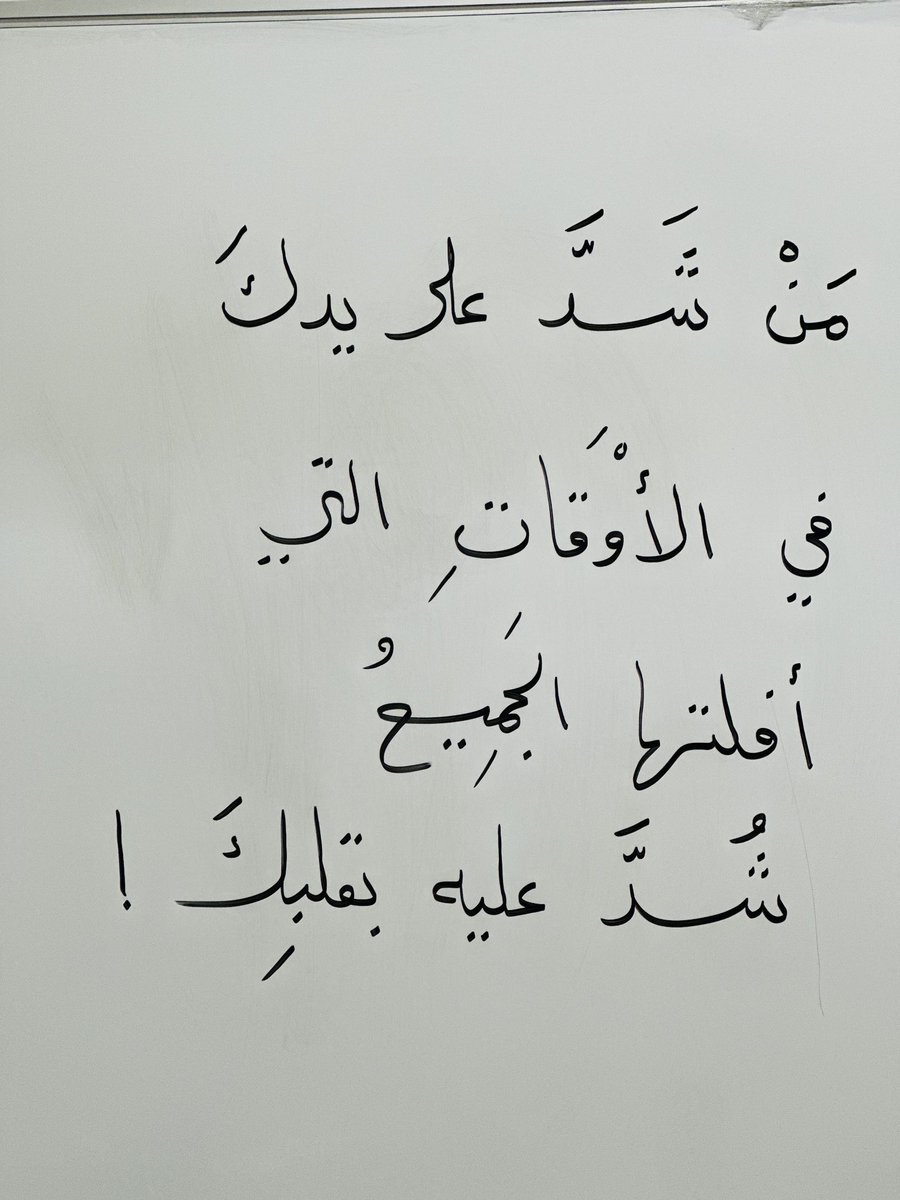 مَنْ شَدَّ على يدكَ
في الأوْقَاتِ التي
أفلتها الجَمِيعُ
شُدَّ عليه بقلبِكَ !